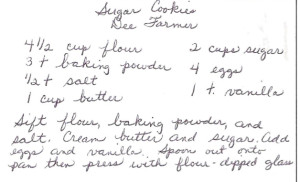 Sugar Cookies
Dee Farmer
4 1/2 cup flour
2 cups sugar
3 t baking powder
4 eggs
1/2 t salt
1 t vanilla
1 cup butter
Sift flour, baking powder, and
salt. Cream butter and sugar. Add
eggs and vanilla. Spoon out onto
pan then press with flour-dipped glass